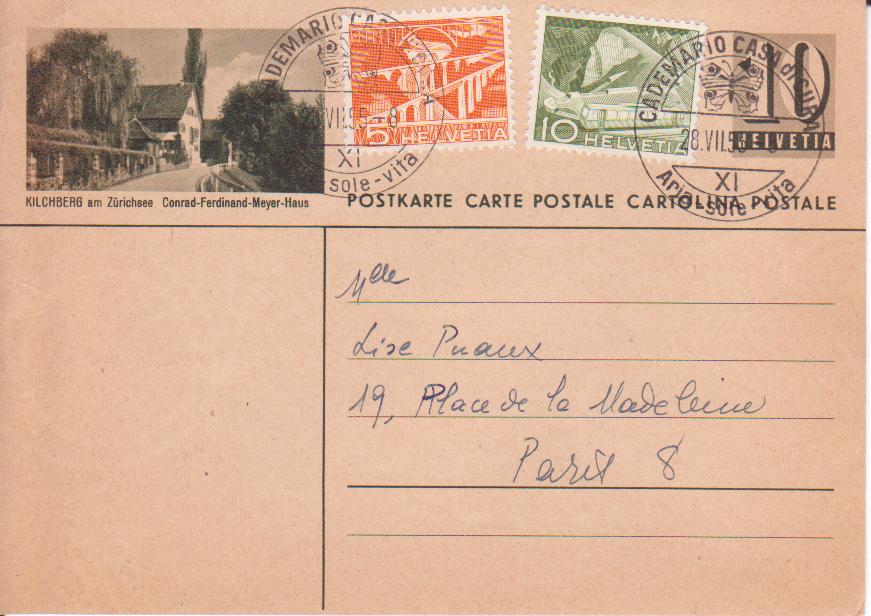 CADEMARIO CASA di CURA
28.VII.5 -8
XI
Aria-sole-vita
5 HELVETIA
10 HELVETIA
10
HELVETIA
CADEMARIO CASA di CURA
28.VII.5
XI
Aria-sole-vita
KILCHBERG am Zürichsee Conrad-Ferdinand-Meyer-Haus
POSTKARTE CARTE POSTALE CARTOLINA POSTALE
Mlle
Lise Puaux
19, Place de la Madeleine
Paris 8